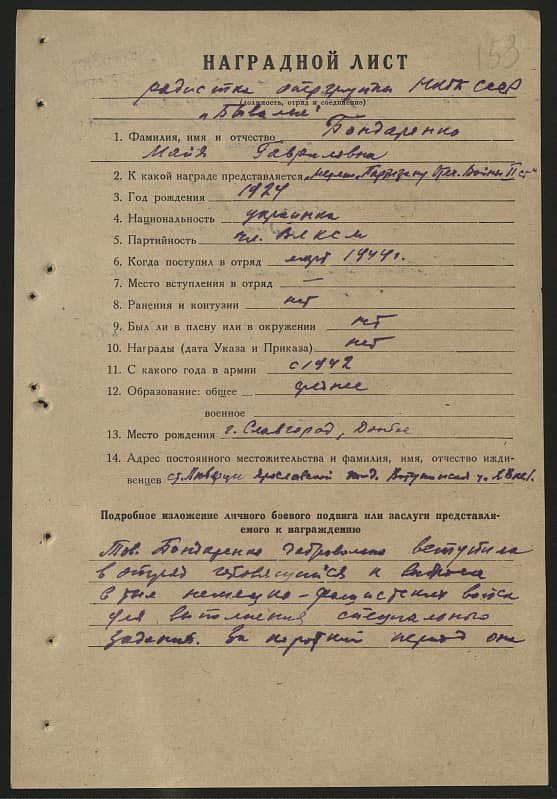 153
НАГРАДНОЙ ЛИСТ
радистка опергруппы НКГБ СССР
(должность, отряд и соединение)
„Бывалые“
1. Фамилия, имя и отчество Бондаренко
Майя Гавриловна
2. К какой награде представляется „Медаль Партизану Отеч. Войны II ст“
3. Год рождения 1924
4. Национальность украинка
5. Партийность чл. ВЛКСМ
6. Когда поступил в отряд март 1944г.
7. Место вступления в отряд —
8. Ранения и контузии нет
9. Был ли в плену или в окружении нет
10. Награды (дата Указа и Приказа) нет
11. С какого года в армии с 1942
12. Образование: общее среднее
военное
13. Место рождения г. Славгород, Донбас
14. Адрес постоянного местожительства и фамилия, имя, отчество ижди-
венцев ст. Люберцы Ярославской жел.
Подробное изложение личного боевого подвига или заслуги представля-
емого к награждению
Тов. Бондаренко добровольно вступила
в отряд готовящийся к выброске
в тыл немецко-фашистских войск
для выполнения специального
задания. За короткий период она